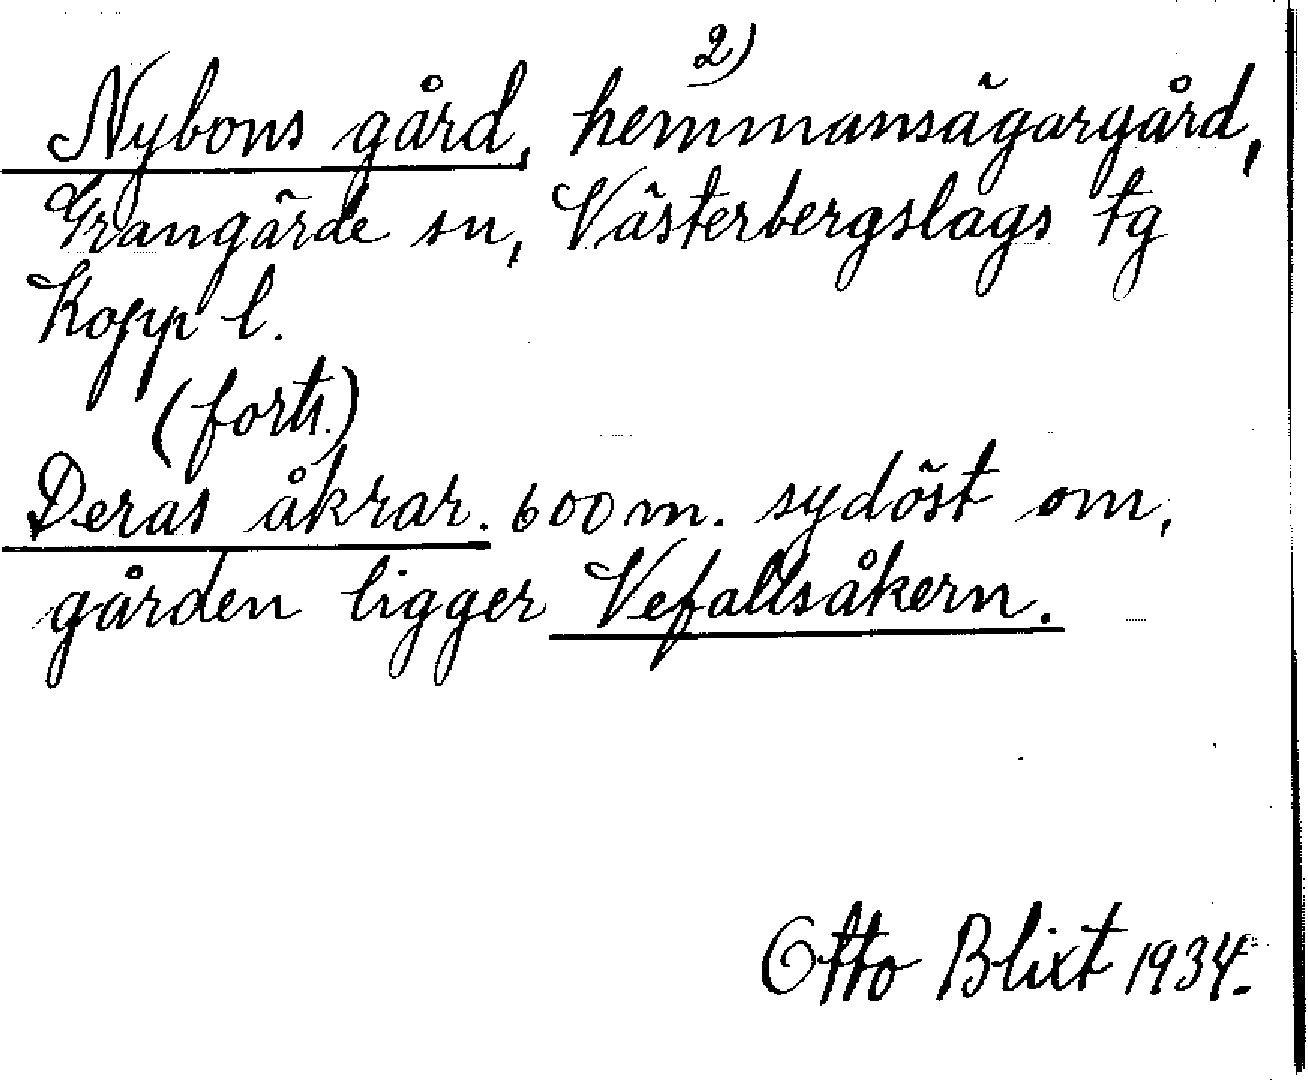 2)
Nybons gård, hemmansägargård,
Grangärde sn, Västerbergslags tg
Kopp l.
(forts.)
Deras åkrar. 600 m. sydöst om,
gården ligger Vefallsåkern.
Otto Blixt 1934.